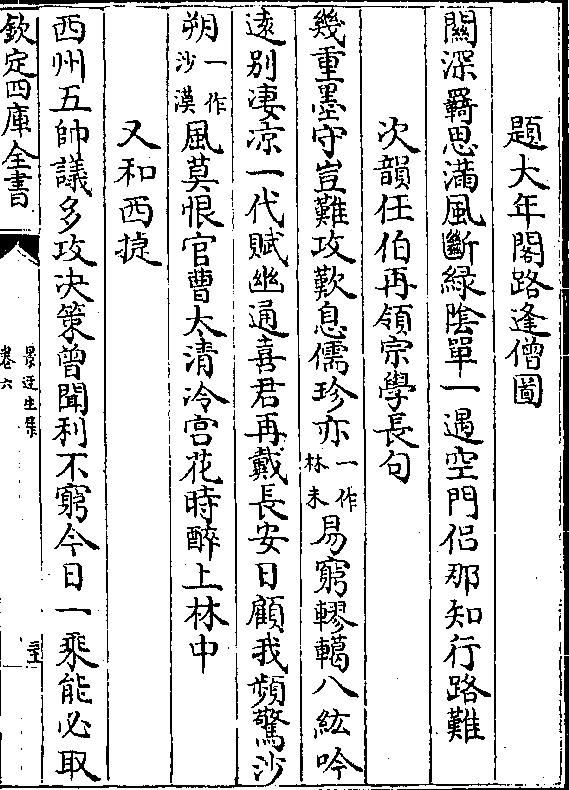 題大年閣路逢僧圖
關深羇思滿風斷綠陰單一遇空門侶那知行路難
次韻任伯再領宗學長句
幾重墨守豈難攻歎息儒珍亦一作林未易窮轇轕八紘吟
遠别凄凉一代賦幽通喜君再戴長安日顧我頻驚沙
朔一作沙漠風莫恨官曹太清冷宫花時醉上林中
又和西捷
西州五帥議多攻决策曾聞利不窮今日一乘能必取
欽定四庫全書
景迂生集
卷六